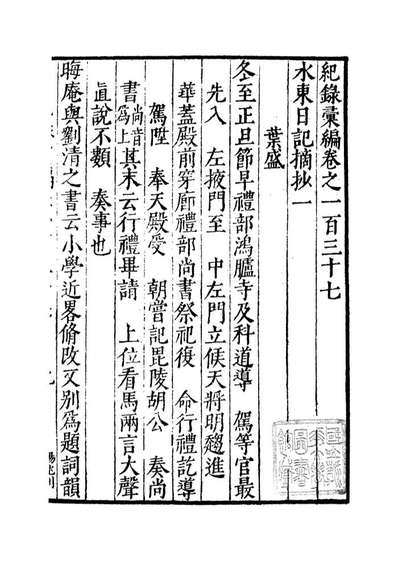 紀錄彙編卷之一百三十七
水東日記摘抄一
葉盛
冬至正旦節早禮部鴻臚寺及科道導 駕等官最
先入 左掖門至 中左門立候天將明趨進
華蓋殿前穿廊禮部尚書祭祀復 命行禮訖導
駕陞 奉天殿受 朝嘗記毘陵胡公 奏尚
書尚音爲上其末云行禮畢請 上位看馬兩言大聲
直說不類 奏事也
晦庵與劉清之書云小學近畧脩改又別爲題詞韻